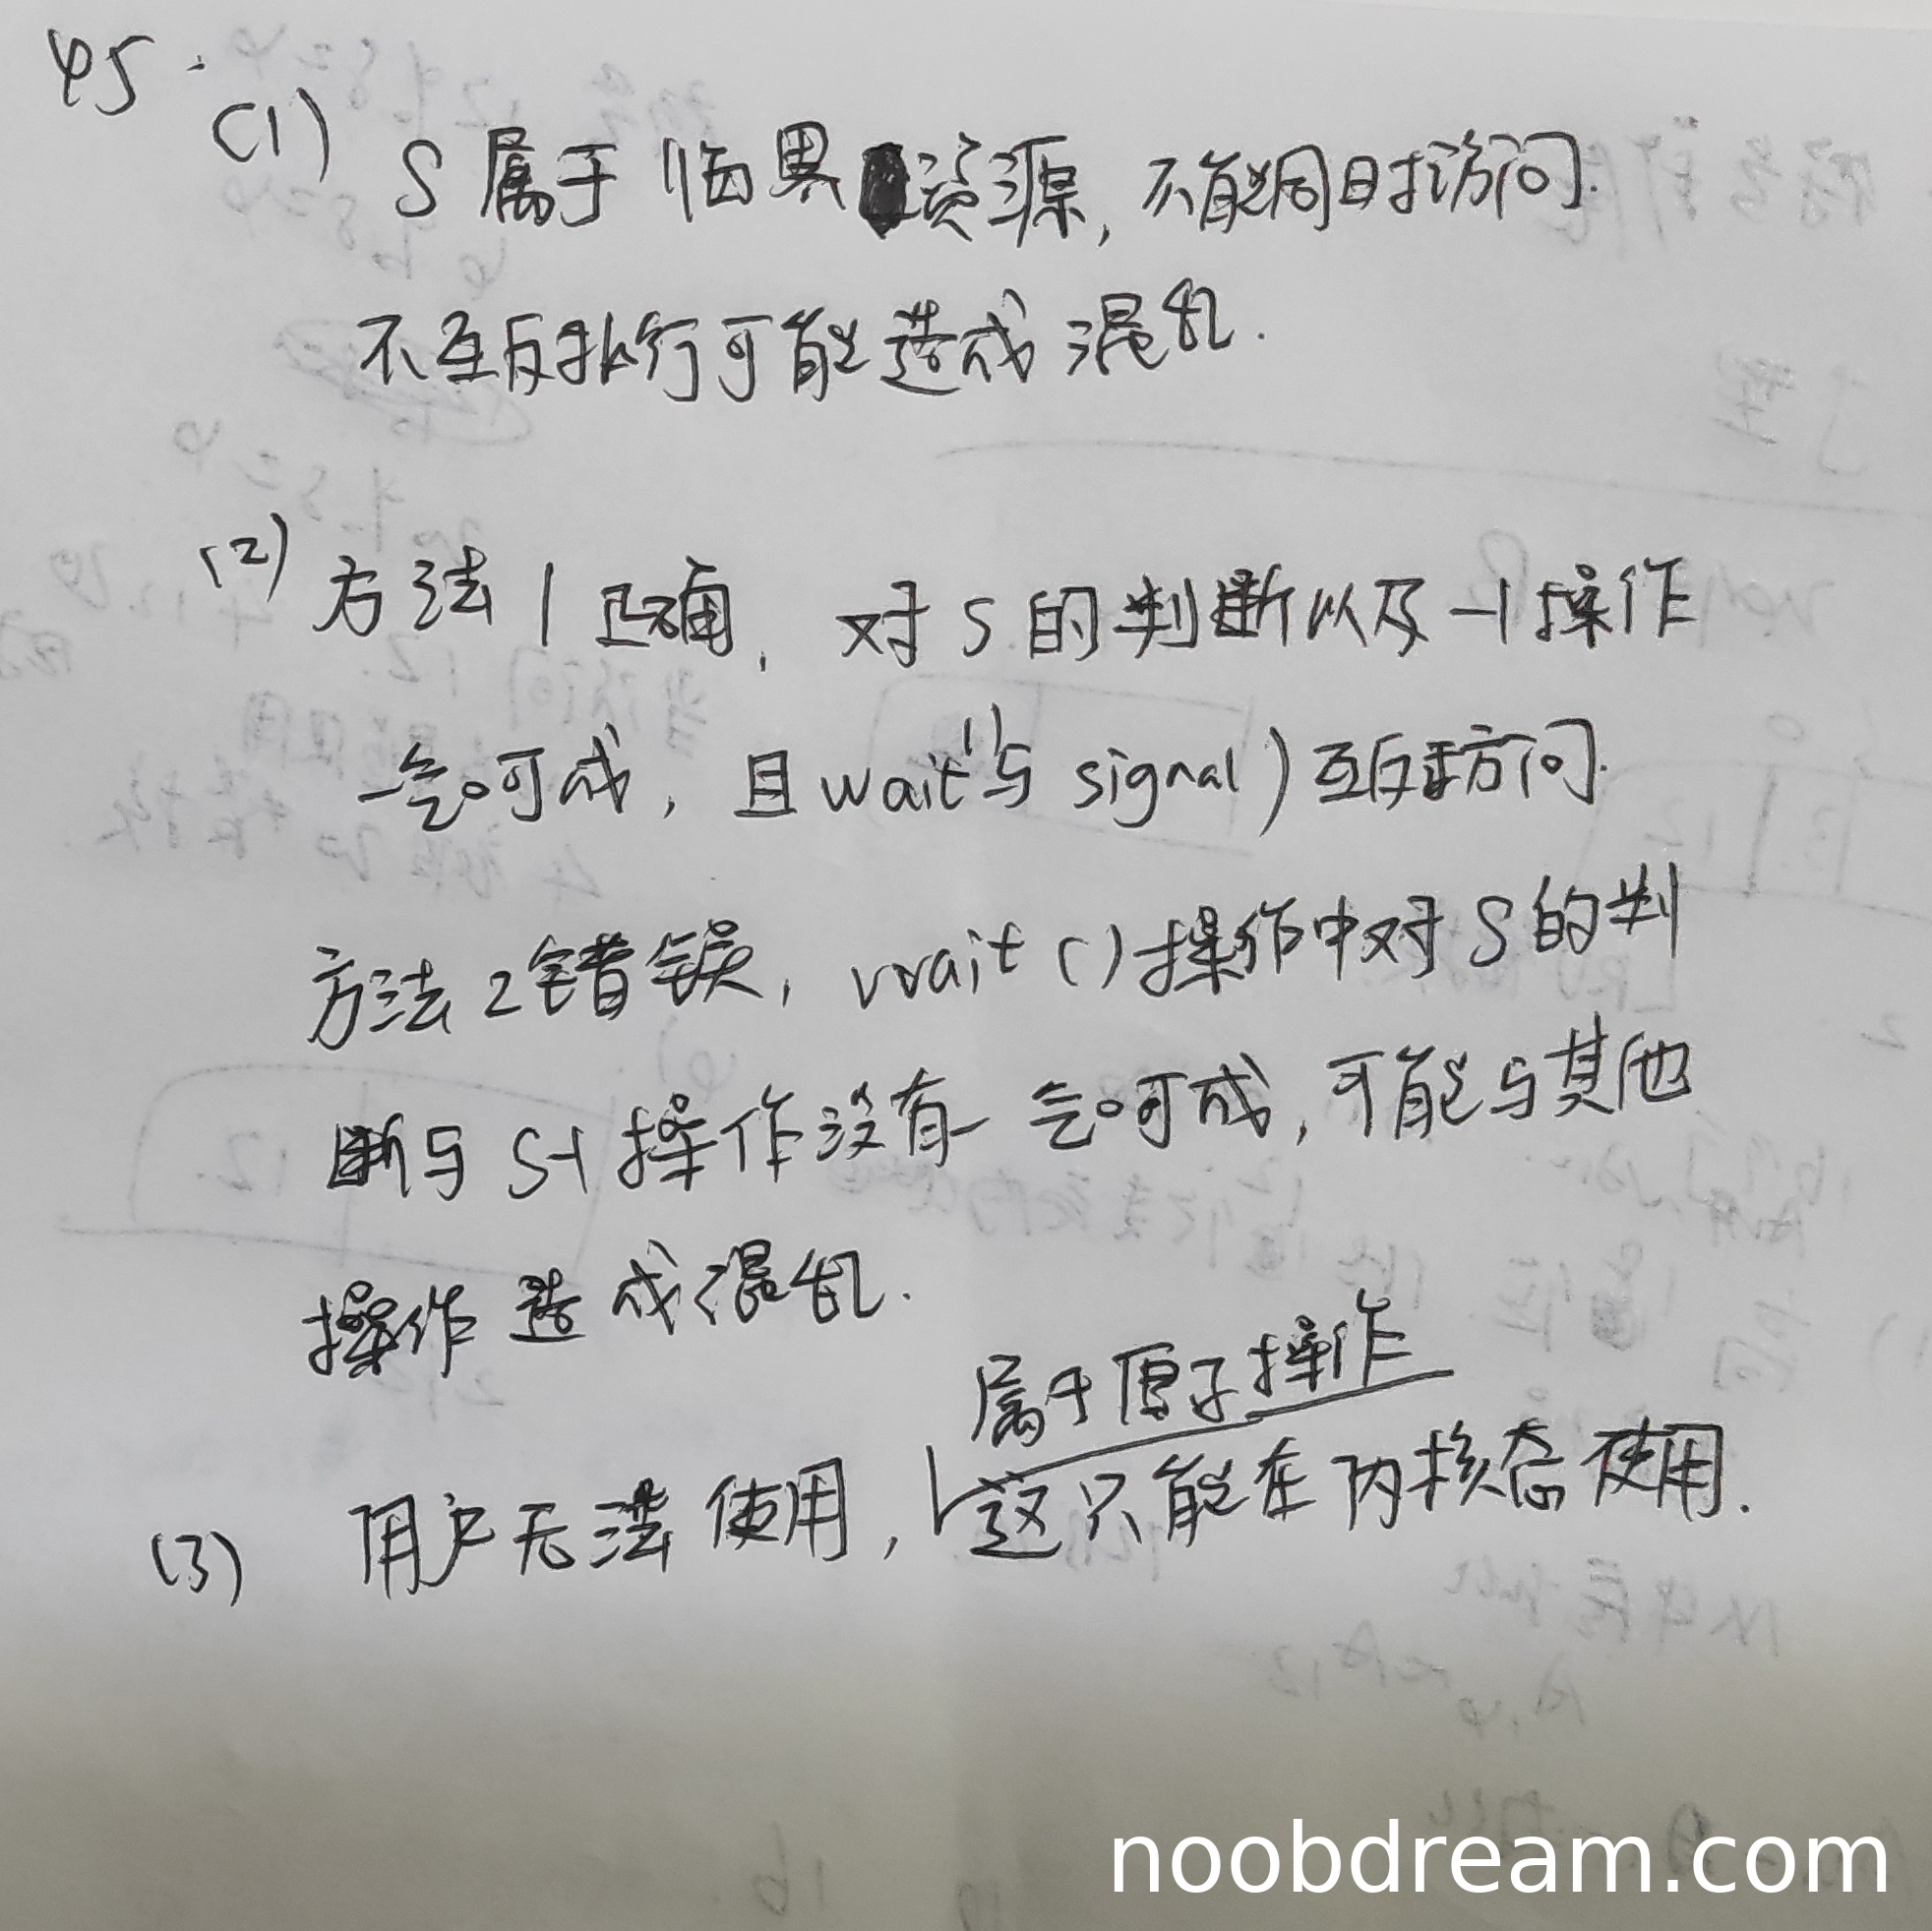 45.
(1) S属于临界资源, 不能同时访问.
不互斥执行可能造成混乱.
(2) 方法1正确, 对S的判断以及-1操作
一气呵成, 且wait()与signal()互斥访问.
方法2错误, wait()操作中对S的判
断与S-1操作没有一气呵成, 可能与其他
操作造成混乱.
属于原子操作
(3) 用户无法使用, 这只能在内核态使用.
noobdream.com